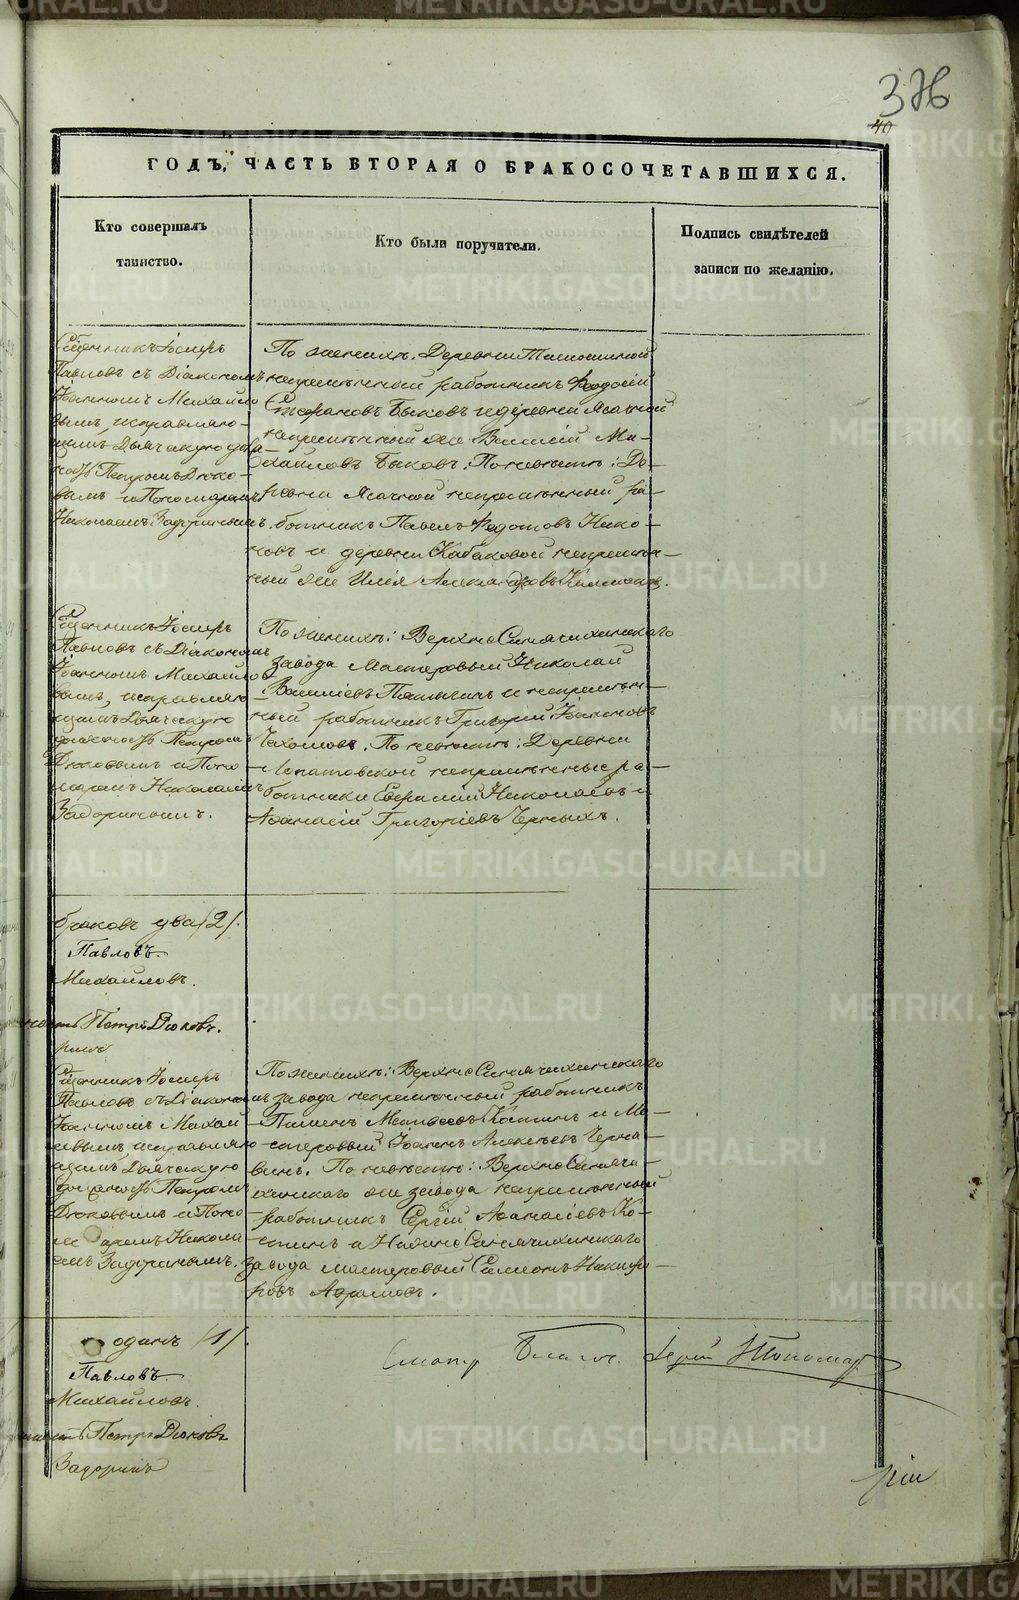 376
40
ГОДЪ, ЧАСТЬ ВТОРАЯ О БРАКОСОЧЕТАВШИХСЯ.
Кто совершалъ
таинство.
Кто были поручители.
Подпись свидѣтелей
записи по желанію.
Сщенникъ Іосифъ
Павловъ съ Діакономъ
Іоанномъ Михайло
вымъ, исправляю-
щимъ Дьяческую дол
Петромъ Дюко-
вымъ и Пономаремъ
Николаемъ Задоринымъ.
По женихѣ: Деревни
непремѣнный работникъ Феодосій
Стефановъ Быковъ и деревни Ясачной
непремѣнный же Василій Ми-
хайловъ Быковъ; По невѣстѣ: Де-
ревни Ясачной непремѣнный ра-
ботникъ Павелъ Федотовъ Нико-
новъ и деревни Кабаковой непремѣн-
ный же Илія Александровъ
Сщенникъ Іосифъ
Павловъ съ Діакономъ
Іоанномъ Михайло
вымъ, исправляю
щимъ Дьяческую
должность Петромъ
Дюковымъ и Поно
маремъ Николаемъ
Задоринымъ.
По женихѣ: Верхне Синячихинскаго
завода Мастеровый Николай
Василіевъ и непремѣн-
ный работникъ Григорій Іоанновъ
По невѣстѣ: Деревни
Лопатовской непремѣнные ра-
ботники Николаевъ и
Афанасій Григоріевъ Черныхъ.
браковъ два /2/.
Павловъ
Михайловъ.
Петръ Дюковъ.
Сщенникъ Іосифъ
Павловъ съ Діакономъ
Іоанномъ Михай
исправляю
щимъ Дьяческую
должность Петромъ
Дюковымъ и Поно
маремъ Никола
емъ Задоринымъ.
По женихѣ: Верхне Синячихинскаго
завода непремѣнный работникъ
Пименъ Матвеевъ Костинъ и Ма-
стеровый Іоаннъ Алексѣевъ Черна-
винъ. По невѣстѣ: Верхне Синячи-
хинскаго же завода непремѣнный
работникъ Сергій Афанасіевъ Ко-
стинъ и Нижне Синячихинскаго
завода мастеровый Симеонъ Никифо-
ровъ Абрамовъ.
одинъ /1/.
Павловъ
Михайловъ.
Петръ Дюковъ
Задоринъ
Смотр. Благоч. Іерей Пономар
METRIKI.GASO-URAL.RU